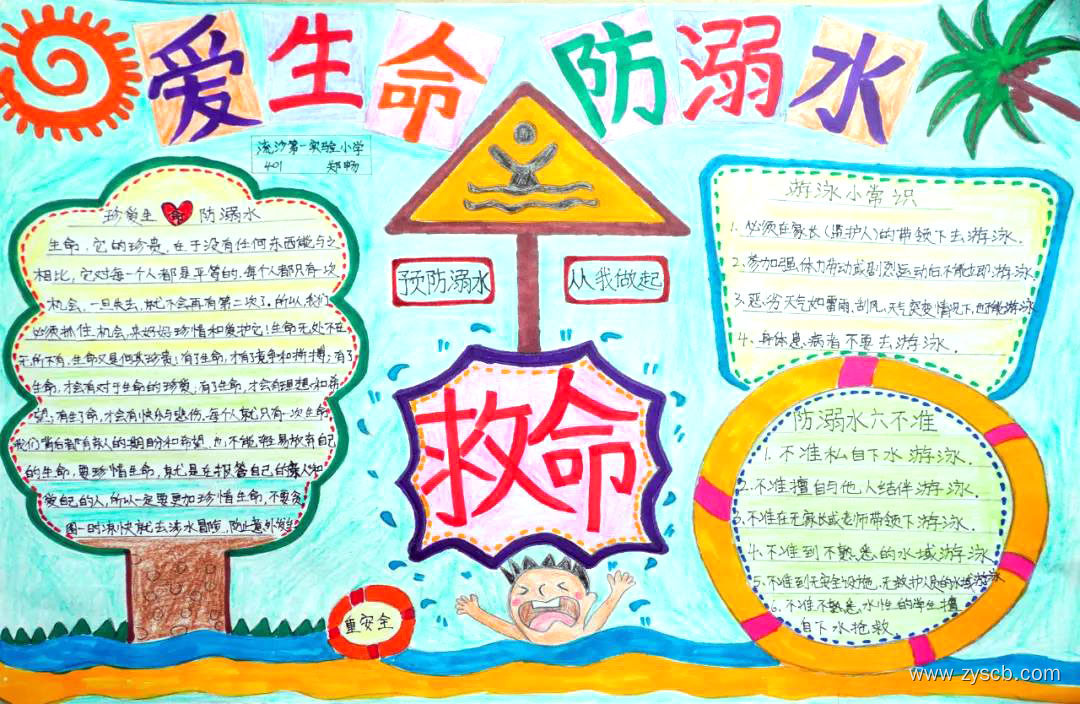 爱生命 防溺水
流沙第一实验小学
401 郑畅
珍爱生命 防溺水
生命,它的珍贵,在于没有任何东西能与之
相比,它对每一个人都是平等的,每个人都只有一次
机会,一旦失去,就不会再有第二次了,所以,我们
必须抓住机会,来好好珍惜和爱护它!生命无处不在
无所不有,生命又是何其珍贵;有了生命,才有了竞争和拼搏;有了
生命,才会有对于生命的珍爱,有了生命,才会有理想和希
望;有生了命,才会有快乐与悲伤,每个人就只有一次生命
我们背后都有亲人的期盼和希望,也不能轻易放弃自己
的生命,要珍惜生命,就是在报答自己的亲人和
爱自己的人,所以一定要更加珍惜生命,不要贪
图一时凉快就去涉水冒险,防止意外发生
预防溺水
从我做起
救命
重安全
游泳小常识
1.必须在家长(监护人)的带领下去游泳.
2.参加强体力劳动或剧烈运动后不能立即游泳
3.恶劣天气如雷雨,刮风,天气突变情况下,也不能游泳
4.身体患病者不要去游泳.
防溺水六不准
1.不准私自下水游泳.
2.不准擅自与他人结伴游泳.
3.不准在无家长或老师带领下游泳.
4.不准到不熟悉的水域游泳
5.不准到无安全设施,无救护人员的水域游泳
6.不准不熟悉水性的学生擅
自下水抢救.
www.zyscb.com